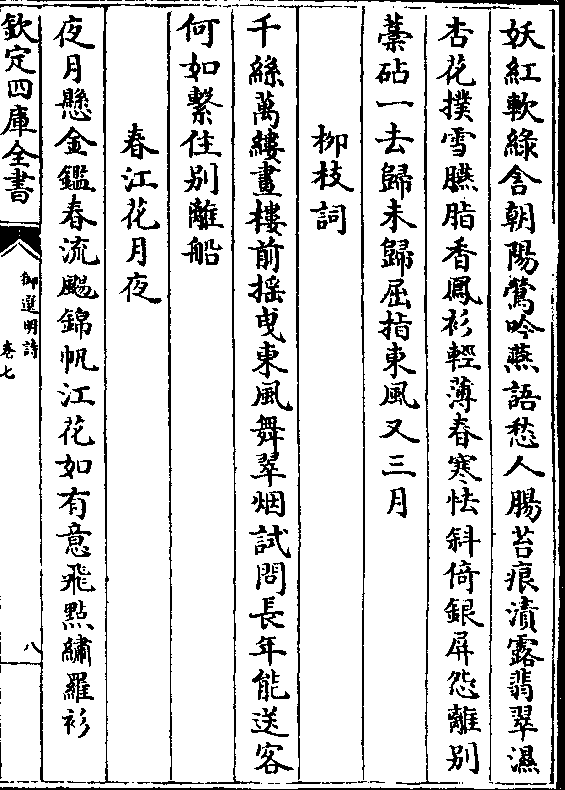 妖紅軟綠含朝陽鶯吟燕語愁人腸苔痕漬露翡翠濕
杏花撲雪臙脂香鳳衫輕薄春寒怯斜倚銀屏怨離别
藁砧一去歸未歸屈指東風又三月
柳枝詞
千絲萬縷畫樓前揺曵東風舞翠烟試問長年能送客
何如繫住别離船
春江花月夜
夜月懸金鑑春流颺錦帆江花如有意飛點繡羅衫
欽定四庫全書
御選明詩
卷七
八